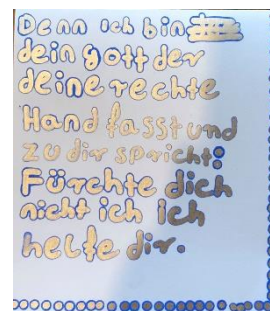 Denn ich bin
dein gott der
deine rechte
Hand fasst und
zu dir spricht:
Fürchte dich
nicht ich ich
helfe dir.